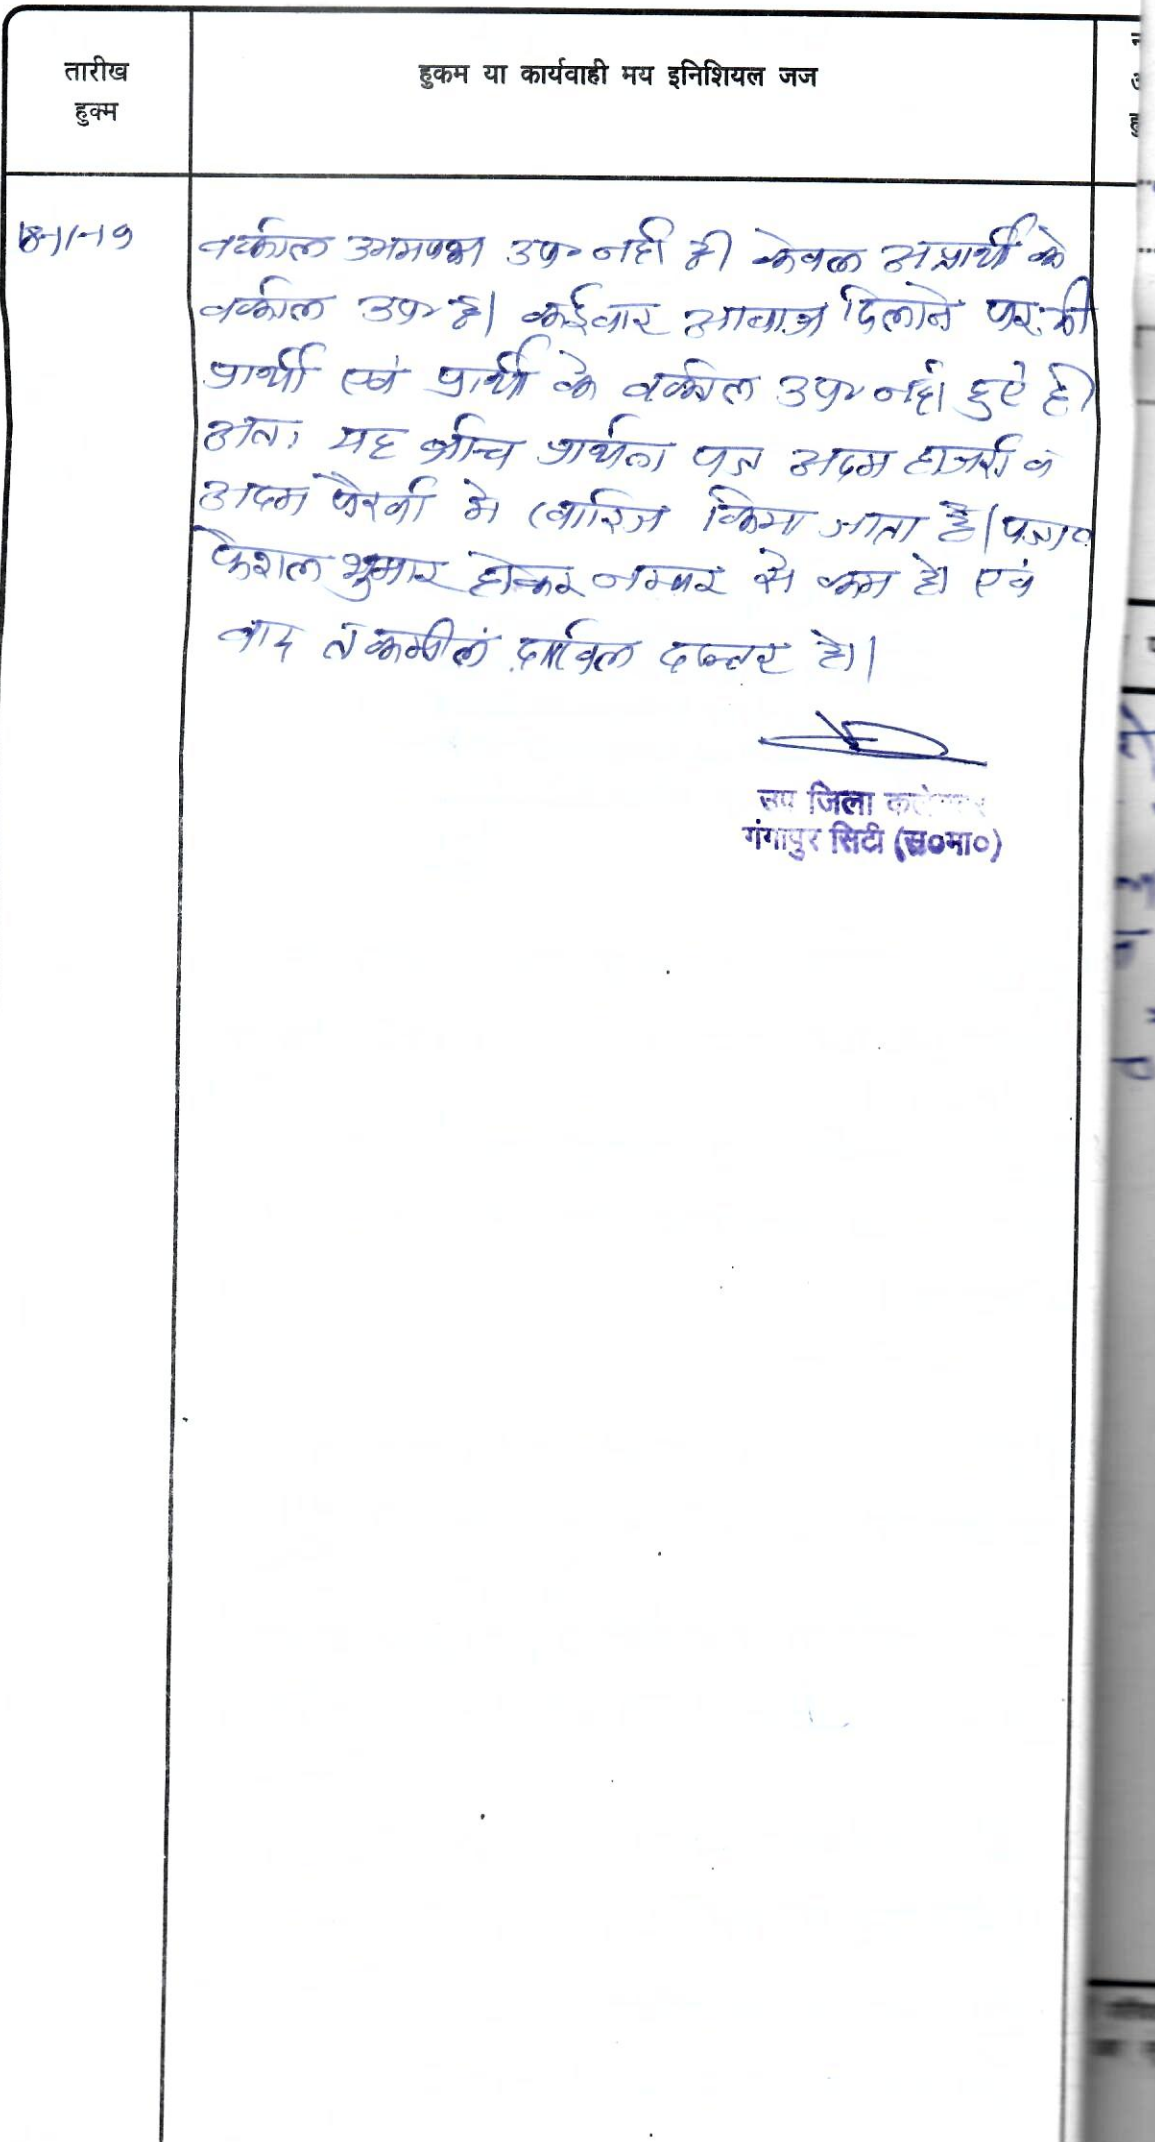 तारीख
हुक्म
हुकम या कार्यवाही मय इनिशियल जज
18-11-19
वकील उभयपक्ष उप० नहीं है। केवल अप्रार्थी के
वकील उप० है। कईबार आवाज दिलाने पर भी
प्रार्थी एवं प्रार्थी के वकील उप० नहीं हुऐ है।
अतः यह प्रार्थना पत्र अदम हाजरी व
अदम पैरवी मे खारिज किया जाता है। पत्रा०
फैशल शुमार होकर नम्बर से कम हो एवं
बाद तकमील दाखिल दफ्तर हो।
उप जिला कलेक्टर
गंगापुर सिटी (स०मा०)